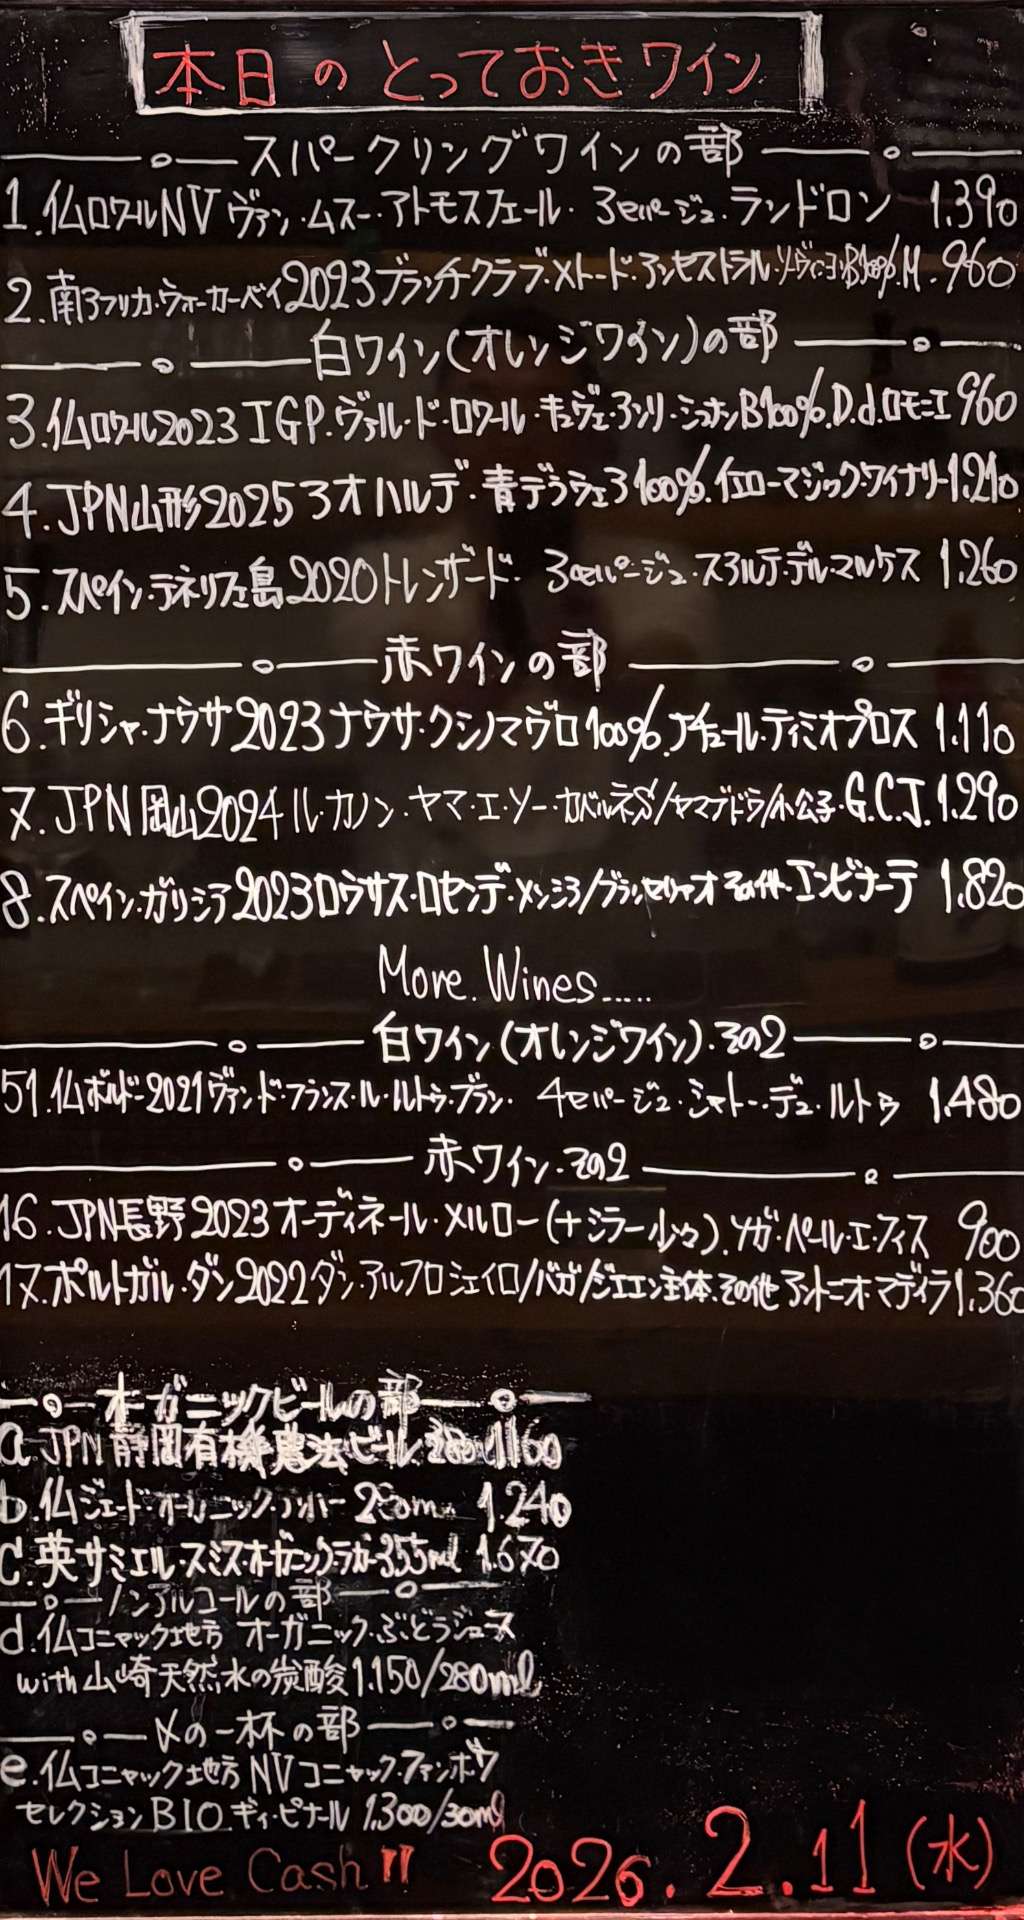 本日のとっておきワイン
スパークリングワインの部
1.仏ロワールNVヴァン・ムスー・アトモスフェール・3セパージュ・ランドロン 1.390
2.南アフリカ・ウォーカーベイ2023ブランチクラブ・メトード・アンセストラル・ソーヴィニヨンB100%.M.960
白ワイン(オレンジワイン)の部
3.仏ロワール2023 IGP.ヴァル・ド・ロワール・キュヴェ・アンリ・シュナンB100%.D.d.ロモニエ960
4.JPN山形2025ヨオハルデ・青デラウェア100%.イエローマジック・ワイナリー1.210
5.スペイン・テネリフェ島2020トレンザード・3セパージュ・スアルテ・デル・マルケス 1.260
赤ワインの部
6.ギリシャ・ナウサ2023ナウサ・クシノマヴロ100%.ナチュール・ティミオプロス 1.110
7.JPN岡山2024ル・カノン・ヤマ・エ・ソー・カベルネS/ヤマブドウ/小公子・G.C.J.1.290
8.スペイン・ガリシア2023ロウサス・ロセンデ・メンシア/ブランセリャオその他・エンビナーテ 1.820
More.Wines.....
白ワイン(オレンジワイン).その2
51.仏ボルドー2021ヴァン・ド・フランス・ル・ルトゥ・ブラン・ 4セパージュ・シャトー・デュ・ルトゥ 1.480
赤ワイン.その2
16.JPN長野2023オーディネール・メルロー(+シラー少々).ソガ・ペール・エ・フィス 900
17.ポルトガル・ダン2022ダン・アルフロシェイロ/バガ/ジャエン主体.その他アントニオ・マデイラ1.360
オーガニックビールの部
a.JPN静岡有機農法ビール 1160
b.仏ジェード・オーガニック・アンバー 250ml 1.240
c.英サミエル・スミス・オーガニックラガー355ml 1.670
ノンアルコールの部
d.仏コニャック地方 オーガニック・ぶどうジュース
with山崎天然水の炭酸1.150/280ml
〆の一杯の部
e.仏コニャック地方NVコニャック・ファンボワ
セレクションBIO.ギィ・ピナール 1.300/30ml
We Love Cash!!
2026.2.11(水)